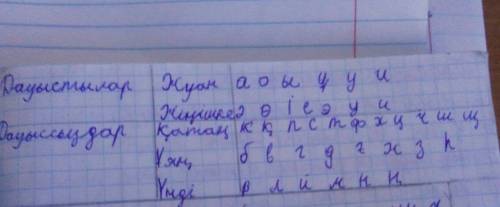 Дауыстылар Жуан а о ы ұ у и
Жіңішке ә ө і е э ү и
Дауыссыздар Қатаң к қ п с т ф х ц ч ш щ
Ұяң б в г д ғ ж з һ
Үнді р л й м н ң